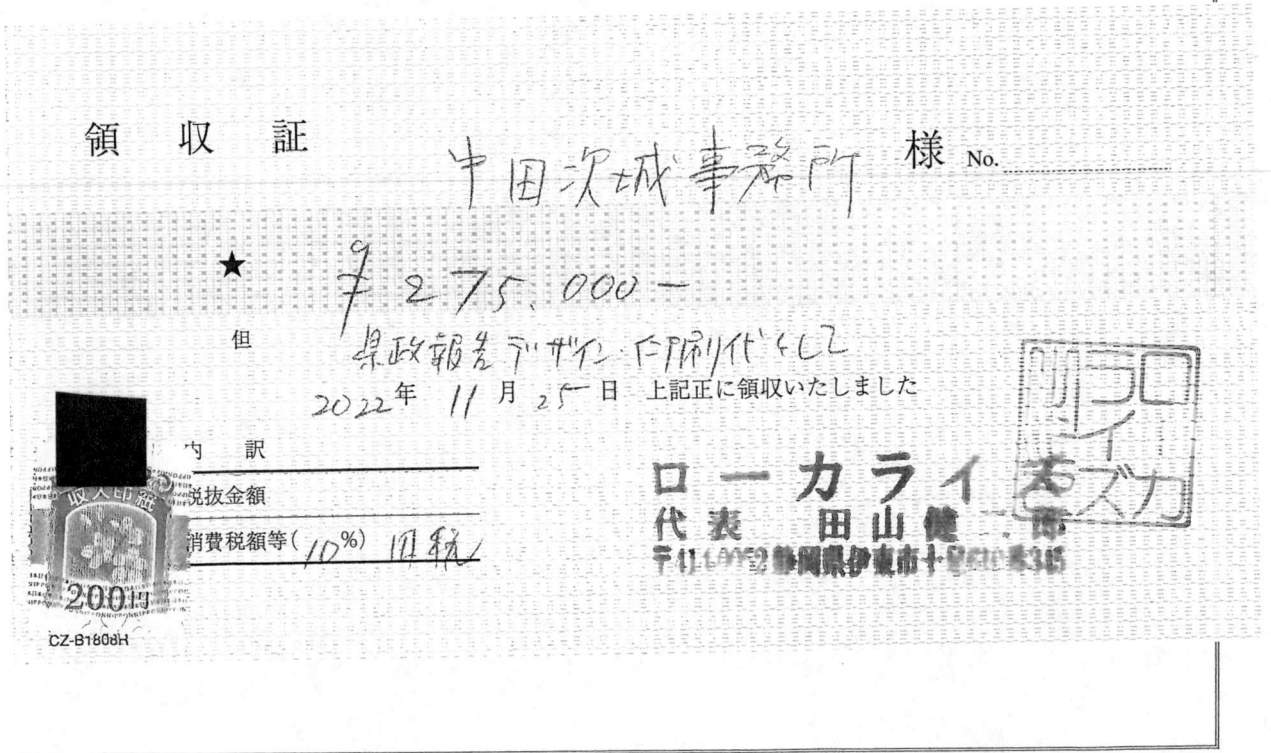 領 収 証 中田次城事務所 様 No.
★ ¥275,000-
但 県政報告デザイン・印刷代として
2022年 11月 25日 上記正に領収いたしました
内 訳
税抜金額
消費税額等(10%) 内税
収入印紙
200円
CZ-B1808H
ローカライズ
代表 田山健 郎
静岡県伊東市